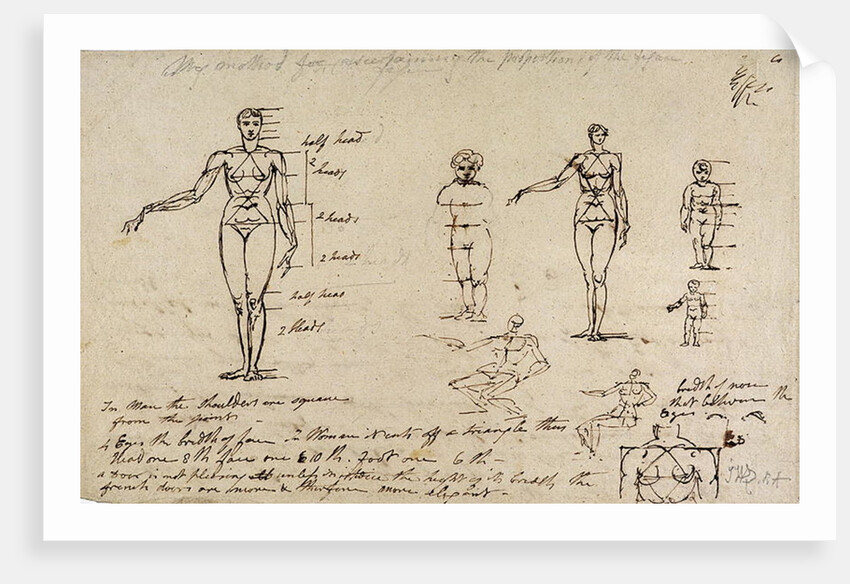 My method for ascertaining the proportions of the figure
half head
2 heads
2 heads
2 heads
half head
2 Heads
In Man the shoulders are square
from the points
4 Eyes the bredth of face in Woman it cuts off a triangle thus
Head one 8th face one 10th. Foot one 6th
a Door is not pleasing unless in the height its bredth the
french doors are more & therefore more elegant
bredth of nose
that between the
Eyes